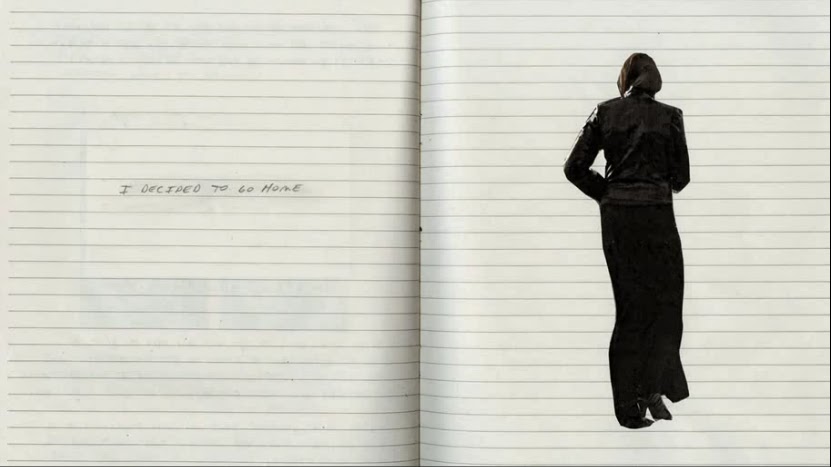 I DECIDED TO GO HOME